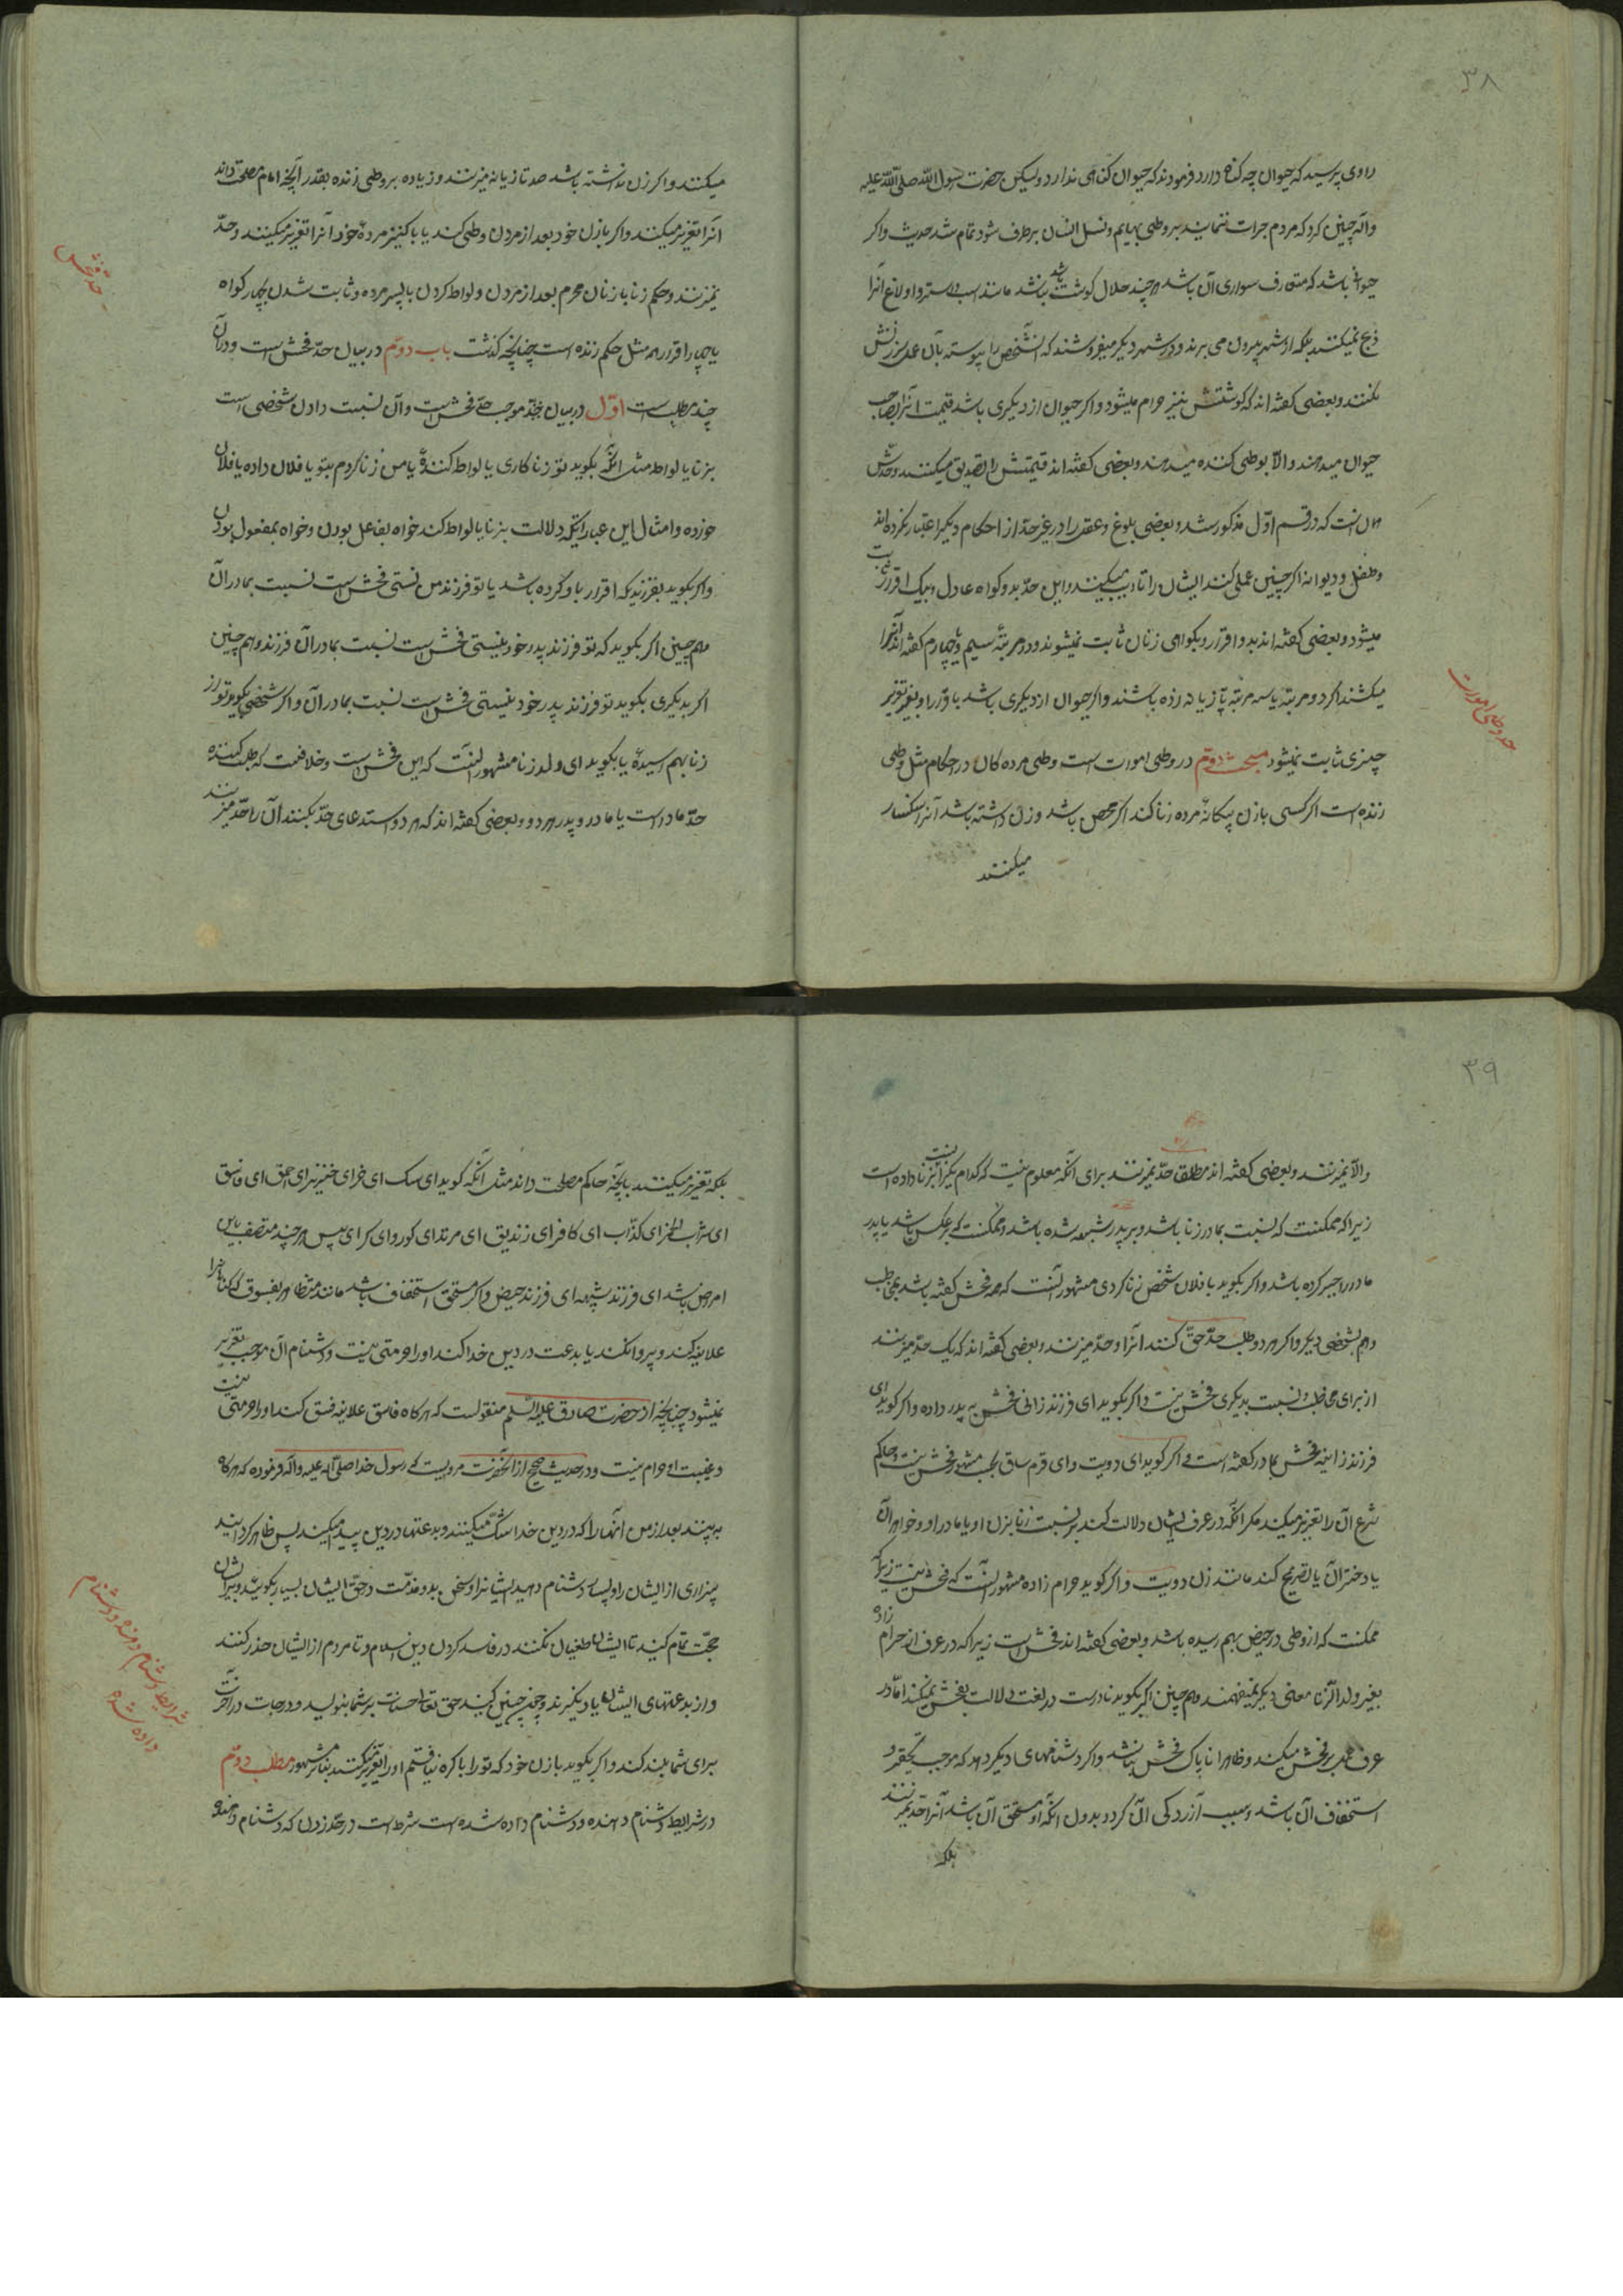 ۳۸
راوی پرسید که حیوان چه کناه دارد فرمودند که حیوان کناهی ندارد ولیکن حضرت رسول الله صلی الله علیه
وآله چنین کرد که مردم جرات ننمایند بر وطی بهایم ونسل انسان برطرف شود تمام شد حدیث واکر
حیوانی باشد که متعارف سواری آن باشد هر چند حلال کوشت باشد مانند اسب واستر واولاغ آنرا
ذبح نمیکنند بلکه از شهر بیرون می برند ودر شهر دیکر میفروشند که آنشخص را پیوسته بآن عمل سرزنش
نکنند وبعضی کفته اند که کوشتش نیز حرام میشود واکر حیوان از دیکری باشد قیمت آنرا بصاحب
حیوان میدهند والا بوطی کننده میدهند وبعضی کفته اند قیمتش را تصدیق میکنند وحدش
همان است که در قسم اول مذکور شد وبعضی بلوغ وعقل را در غیر حد از احکام دیکر اعتبار نکرده اند
وطفل ودیوانه اکر چنین عملی کنند ایشان را تادیب میکنند واین حد بدو کواه عادل وبیک اقرار ثابت
میشود وبعضی کفته اند بدو اقرار وبکواهی زنان ثابت نمیشوند ودر مرتبه سیم یا چهارم کفته اند آنرا
میکشند اکر دو مرتبه یا سه مرتبه تازیانه زده باشند واکر حیوان از دیکری باشد باقرار او بغیر تعزیر
چیزی ثابت نمیشود مبحث دوم در وطی اموات است وطی مرده کان در احکام مثل وطی
زنده است اکر کسی با زن بیکانه مرده زنا کند اکر محصن باشد وزن داشته باشد آنرا سنکسار
میکنند
حد وطی اموات
میکنند واکر زن نداشته باشد صد تازیانه میزنند وزیاده بر وطی زنده بقدر آنچه امام مصلحت داند
آنرا تعزیر میکنند واکر با زن خود بعد از مردن وطی کند یا با کنیز مرده خود آنرا تعزیر میکنند وحد
نمیزنند وحکم زنا با زنان محرم بعد از مردن ولواط کردن با پسر مرده وثابت شدن بچهار کواه
یا چهار اقرار همه مثل حکم زنده است چنانچه کذشت باب دوم در بیان حد فحش است ودر آن
چند مطلب است اول در بیان موجب حد فحش است وآن نسبت دادن شخصی است
بزنا یا لواط مثل آنکه بکوید تو زنا کاری یا لواط کننده یا من زنا کردم بتو یا فلان داده یا فلان
خورده وامثال این عبارات که دلالت بزنا یا لواط کند خواه بفاعل بودن وخواه بمفعول بودن
واکر بکوید بفرزندیکه اقرار باو کرده باشد یا تو فرزند من نیستی فحش است نسبت بمادر آن
وهم چنین اکر بکوید که تو فرزند پدر خود نیستی فحش است نسبت بمادر آن فرزند وهم چنین
اکر بدیکری بکوید تو فرزند پدر خود نیستی فحش است نسبت بمادر آن واکر شخصی بکوید تو از
زنا بهم رسیده یا بکوید ای ولد زنا مشهور آنست که این فحش است وخلافست که طلب کننده
حد مادر است یا مادر وپدر هر دو وبعضی کفته اند که هر دو استدعای حد بکنند آن را حد میزنند
حد فحش
۳۹
والا نمیزنند وبعضی کفته اند مطلقا حد نمیزنند برای آنکه معلوم نیست که کدام یک را نسبت بزنا داده است
زیرا که ممکنست که نسبت بمادر زنا باشد وبر پدر شبهه شده باشد وممکنست که بر عکس باشد یا پدر
مادر را جبر کرده باشد واکر بکوید با فلان شخص زنا کردی مشهور آنست که همه فحش کفته باشد بمخاطب
وهم بشخصی دیکر واکر هر دو طلب حد حق کنند آنرا دو حد میزنند وبعضی کفته اند که یک حد میزنند
از برای مخاطب ونسبت بدیکری فحش نیست واکر بکوید ای فرزند زانی فحش به پدر داده واکر کوید ای
فرزند زانیه فحش بمادر کفته است واکر کوید ای دیوث وای قرم ساق بحسب مشهور فحش نیست وحاکم
شرع آن را تعزیر میکند مکر آنکه در عرف ایشان دلالت کند بر نسبت زنا بزن او یا مادر او وخواهر آن
یا دختر آن یا تصریح کند مانند زن دیوث واکر کوید حرام زاده مشهور آنست که فحش نیست زیرا که
ممکنست که از وطی در حیض بهم رسیده باشد وبعضی کفته اند فحش است زیرا که در عرف از حرام زاده
بغیر ولد الزنا معنی دیکر نمیفهمند وهم چنین اکر بکوید نادرست در لغت دلالت بفحش نمیکند اما در
عرف عجم بر فحش میکند وظاهرا ناپاک فحش نباشد واکر دشنامهای دیکر دهد که موجب تحقیر و
استخفاف آن باشد وسبب آزردکی آن کردد بدون آنکه او مستحق آن باشد آنرا حد نمیزنند
بلکه
بلکه تعزیر میکنند بآنچه حاکم مصلحت داند مثل آنکه کوید ای سک ای خر ای خنزیر ای احمق ای فاسق
ای شراب خوار ای کذاب ای کافر ای زندیق ای مرتد ای کور وای کر ای پیس هر چند متصف باین
امراض باشد ای فرزند شبهه ای فرزند حیض واکر مستحق استخفاف باشد مانند متظاهر بفسوق که کناه را
علانیه کند وپروا نکند یا بدعت در دین خدا کند او را حرمتی نیست ودشنام آن موجب تعزیر
نمیشود چنانچه از حضرت صادق علیه السلم منقولست که هر کاه فاسق علانیه فسق کند او را حرمتی نیست
وغیبت او حرام نیست ودر حدیث صحیح از آنحضرت مرویست که رسول خدا صلی الله علیه وآله فرموده که هر کاه
به بینند بعد از من آنها را که در دین خدا شک میکنند وبدعتها در دین پیدا میکنند پس ظاهر کردانید
بیزاری از ایشان را وبسیار دشنام دهید ایشانرا وسخن بد ومذمت در حق ایشان بسیار بکوئید وبر ایشان
حجت تمام کنید تا ایشان طغیان نکنند در فاسد کردن دین اسلام وتا مردم از ایشان حذر کنند
واز بدعتهای ایشان یاد نکیرند وچون چنین کنید حق تعالی حسنات بر شما بنویسد ودرجات در آخرت
برای شما بلند کند واکر بکوید با زن خود که تو را باکره نیافتم او را تعزیر میکنند بنا بر مشهور مطلب دوم
در شرایط دشنام دهنده ودشنام داده شده است شرط است در حد زدن که دشنام دهنده
شرایط دشنام دهنده ودشنام
داده شده